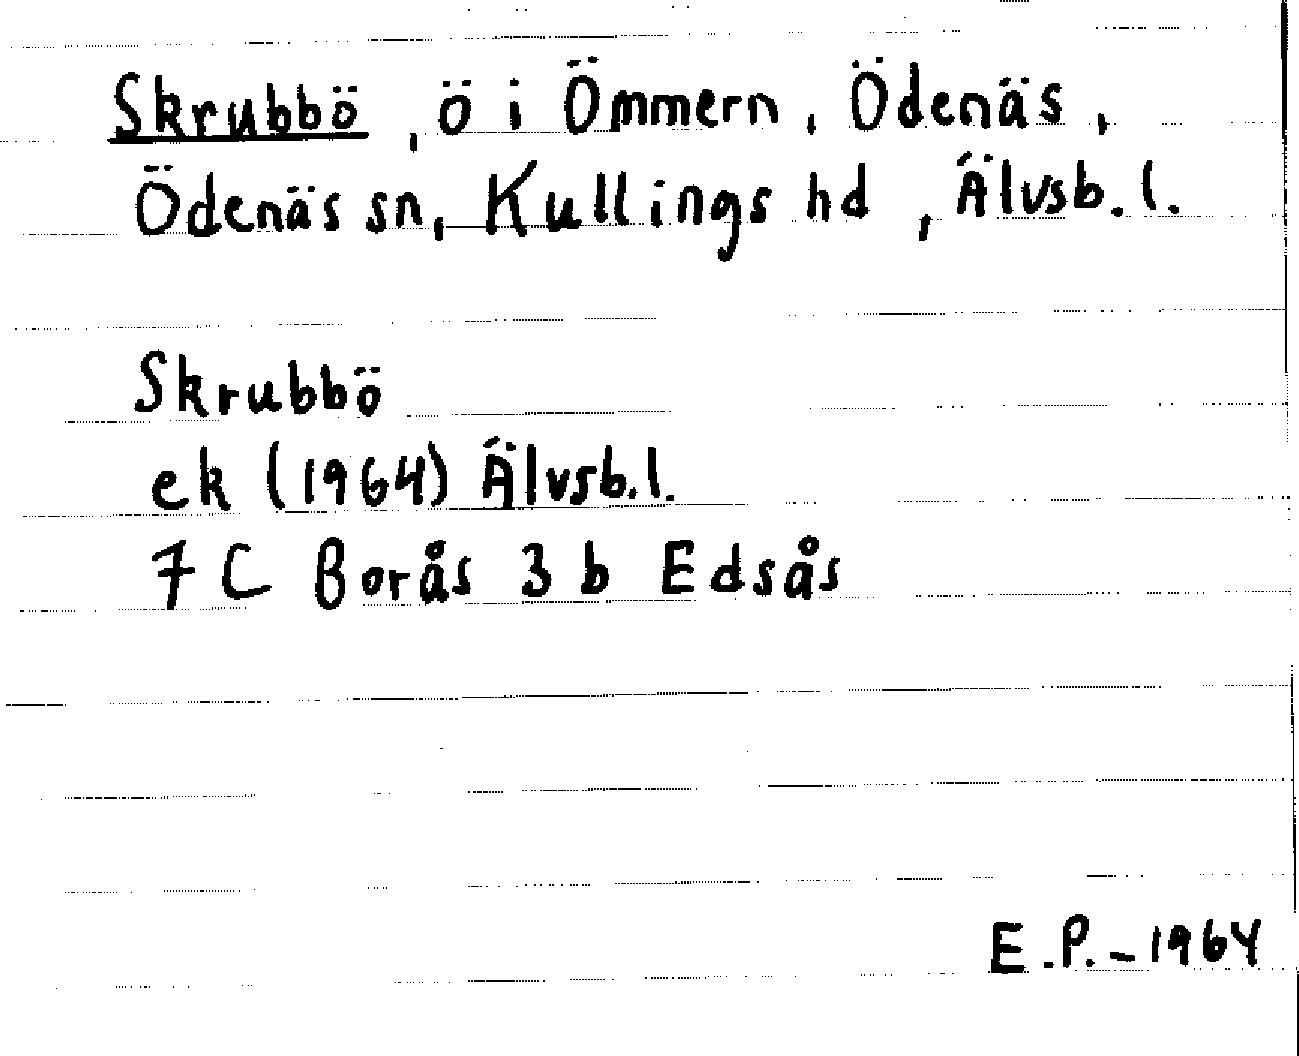 Skrubbö, ö i Ömmern, Ödenäs,
Ödenäs sn, Kullings hd, Älvsb. l.
Skrubbö
ek (1964) Älvsb. l.
7 C Borås 3 b Edsås
E.P. - 1964